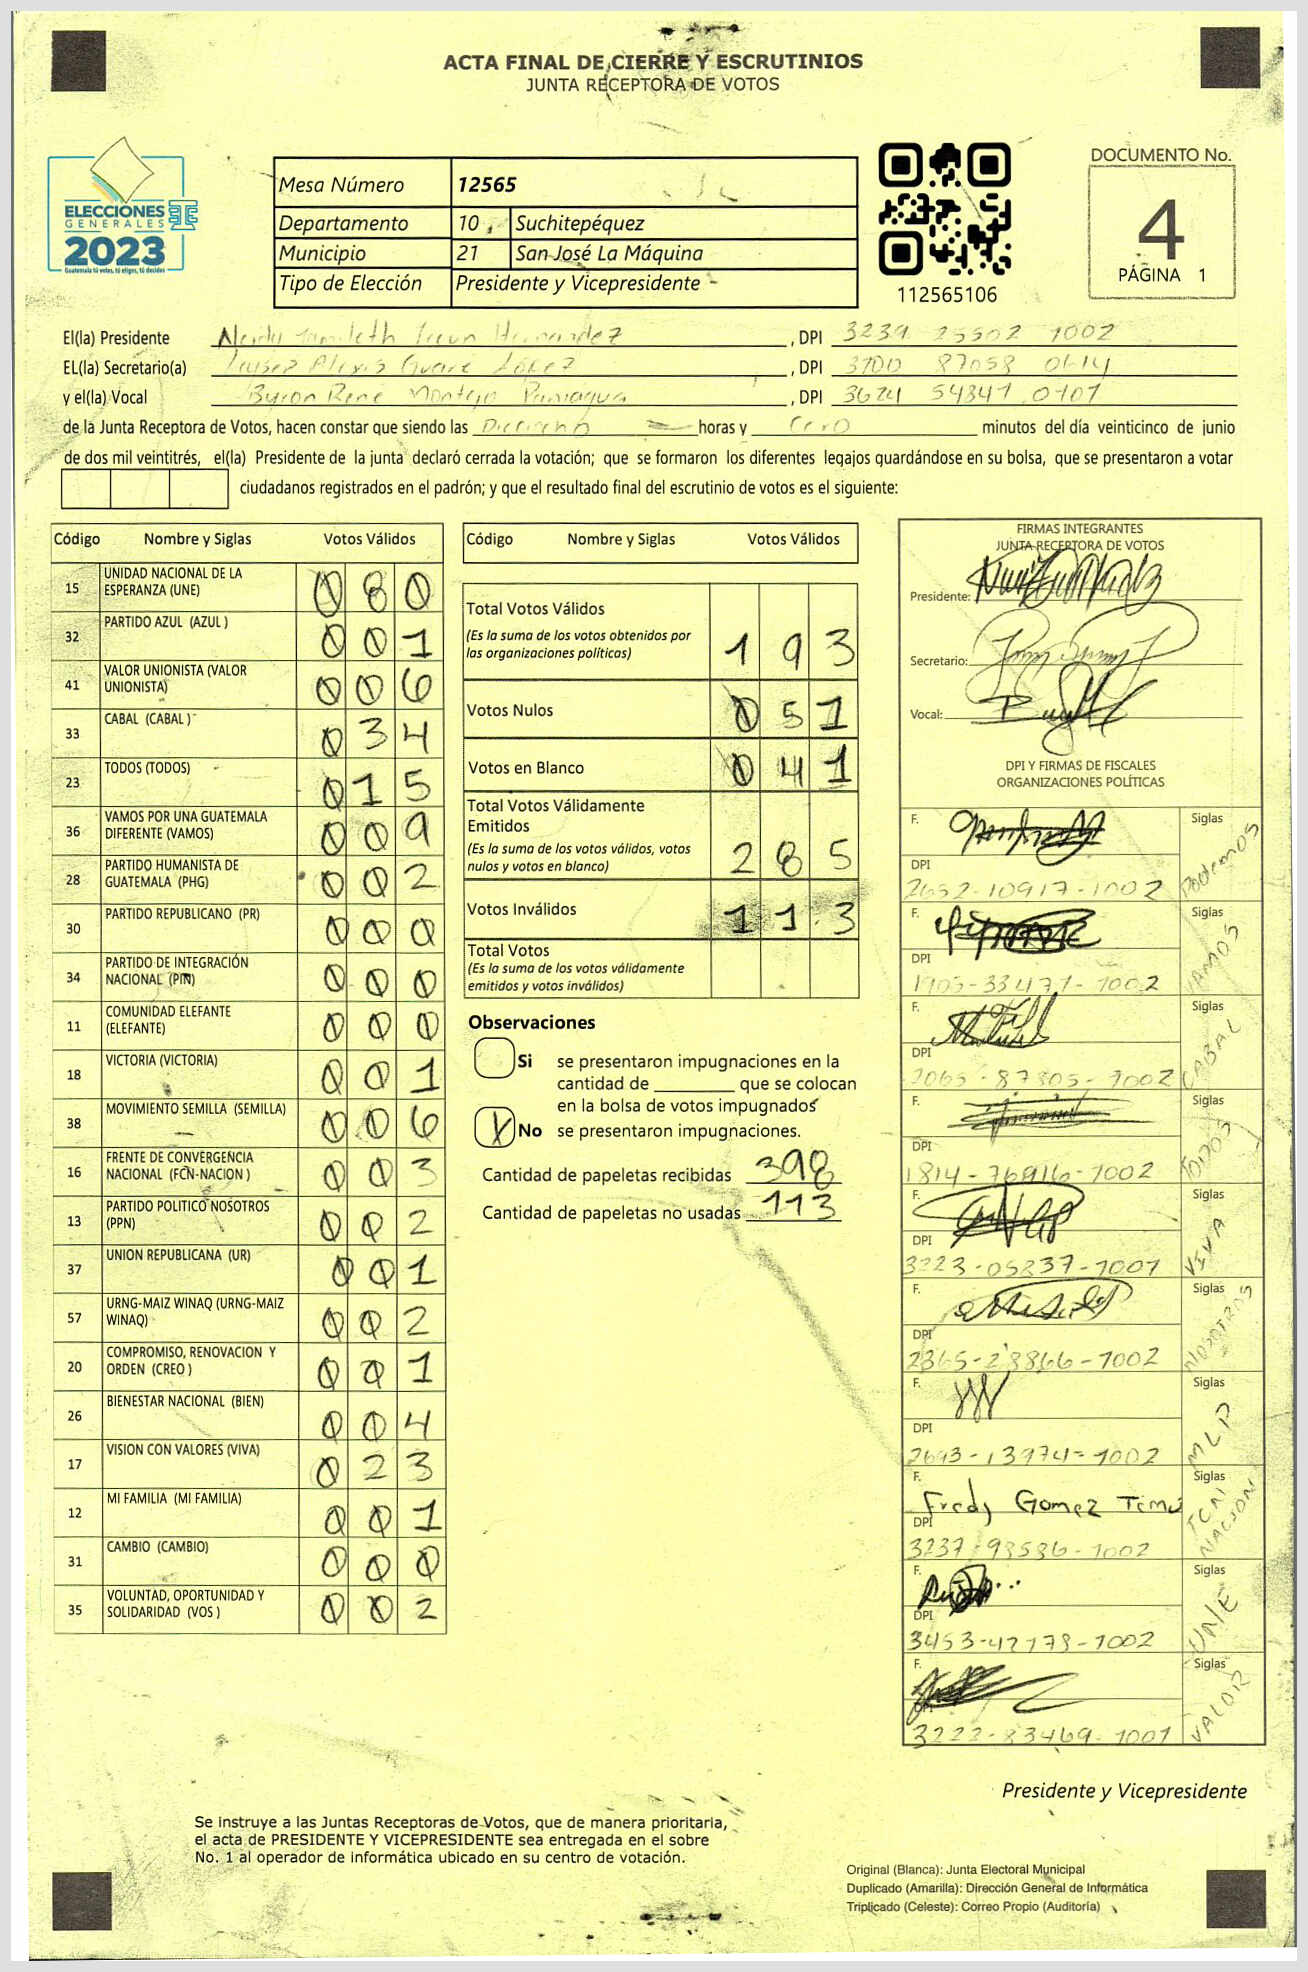 ACTA FINAL DE CIERRE Y ESCRUTINIOS
JUNTA RECEPTORA DE VOTOS
ELECCIONES
GENERALES
2023
Guatemala tú votes, tú eliges, tú decides
Mesa Número 12565
Departamento 10 Suchitepéquez
Municipio 21 San José La Máquina
Tipo de Elección Presidente y Vicepresidente
112565106
DOCUMENTO No.
4
PÁGINA 1
El(la) Presidente Hernandez, DPI 3239 25502 1002
EL(la) Secretario(a) Alexis López, DPI 3700 87058 0614
y el(la) Vocal Byron Rene Montejo Paniagua, DPI 3624 54847 0101
de la Junta Receptora de Votos, hacen constar que siendo las Dieciocho horas y Cero minutos del día veinticinco de junio
de dos mil veintitrés, el(la) Presidente de la junta declaró cerrada la votación; que se formaron los diferentes legajos guardándose en su bolsa, que se presentaron a votar
ciudadanos registrados en el padrón; y que el resultado final del escrutinio de votos es el siguiente:
Código Nombre y Siglas Votos Válidos
15 UNIDAD NACIONAL DE LA ESPERANZA (UNE) 080
32 PARTIDO AZUL (AZUL ) 001
41 VALOR UNIONISTA (VALOR UNIONISTA) 006
33 CABAL (CABAL ) 034
23 TODOS (TODOS) 015
36 VAMOS POR UNA GUATEMALA DIFERENTE (VAMOS) 009
28 PARTIDO HUMANISTA DE GUATEMALA (PHG) 002
30 PARTIDO REPUBLICANO (PR) 000
34 PARTIDO DE INTEGRACIÓN NACIONAL (PIN) 000
11 COMUNIDAD ELEFANTE (ELEFANTE) 000
18 VICTORIA (VICTORIA) 001
38 MOVIMIENTO SEMILLA (SEMILLA) 006
16 FRENTE DE CONVERGENCIA NACIONAL (FCN-NACION ) 003
13 PARTIDO POLITICO NOSOTROS (PPN) 002
37 UNION REPUBLICANA (UR) 001
57 URNG-MAIZ WINAQ (URNG-MAIZ WINAQ) 002
20 COMPROMISO, RENOVACION Y ORDEN (CREO ) 001
26 BIENESTAR NACIONAL (BIEN) 004
17 VISION CON VALORES (VIVA) 023
12 MI FAMILIA (MI FAMILIA) 001
31 CAMBIO (CAMBIO) 000
35 VOLUNTAD, OPORTUNIDAD Y SOLIDARIDAD (VOS ) 002
Código Nombre y Siglas Votos Válidos
Total Votos Válidos 193
(Es la suma de los votos obtenidos por
las organizaciones políticas)
Votos Nulos 051
Votos en Blanco 041
Total Votos Válidamente
Emitidos 285
(Es la suma de los votos válidos, votos
nulos y votos en blanco)
Votos Inválidos 113
Total Votos
(Es la suma de los votos válidamente
emitidos y votos inválidos)
Observaciones
Si se presentaron impugnaciones en la
cantidad de ________ que se colocan
en la bolsa de votos impugnados
X No se presentaron impugnaciones.
Cantidad de papeletas recibidas 398
Cantidad de papeletas no usadas 113
FIRMAS INTEGRANTES
JUNTA RECEPTORA DE VOTOS
Presidente:
Secretario:
Vocal:
DPI Y FIRMAS DE FISCALES
ORGANIZACIONES POLÍTICAS
F. Siglas Podemos
DPI
2652-10917-1002
F. Siglas VAMOS
DPI
1905-33477-1002
F. Siglas CABAL
DPI
2065-87305-1002
F. Siglas TODOS
DPI
1814-76916-1002
F. Siglas VIVA
DPI
3223-05237-1001
F. Siglas NOSOTROS
DPI
2365-28866-1002
F. Siglas MLP
DPI
2693-13974-1002
F. Fredy Gomez Siglas NACION
DPI
3237-98586-1002
F. Siglas UNE
DPI
3453-42178-1002
F. Siglas VALOR
DPI
3222-83469-1001
Presidente y Vicepresidente
Se instruye a las Juntas Receptoras de Votos, que de manera prioritaria,
el acta de PRESIDENTE Y VICEPRESIDENTE sea entregada en el sobre
No. 1 al operador de informática ubicado en su centro de votación.
Original (Blanca): Junta Electoral Municipal
Duplicado (Amarilla): Dirección General de Informática
Triplicado (Celeste): Correo Propio (Auditoría)